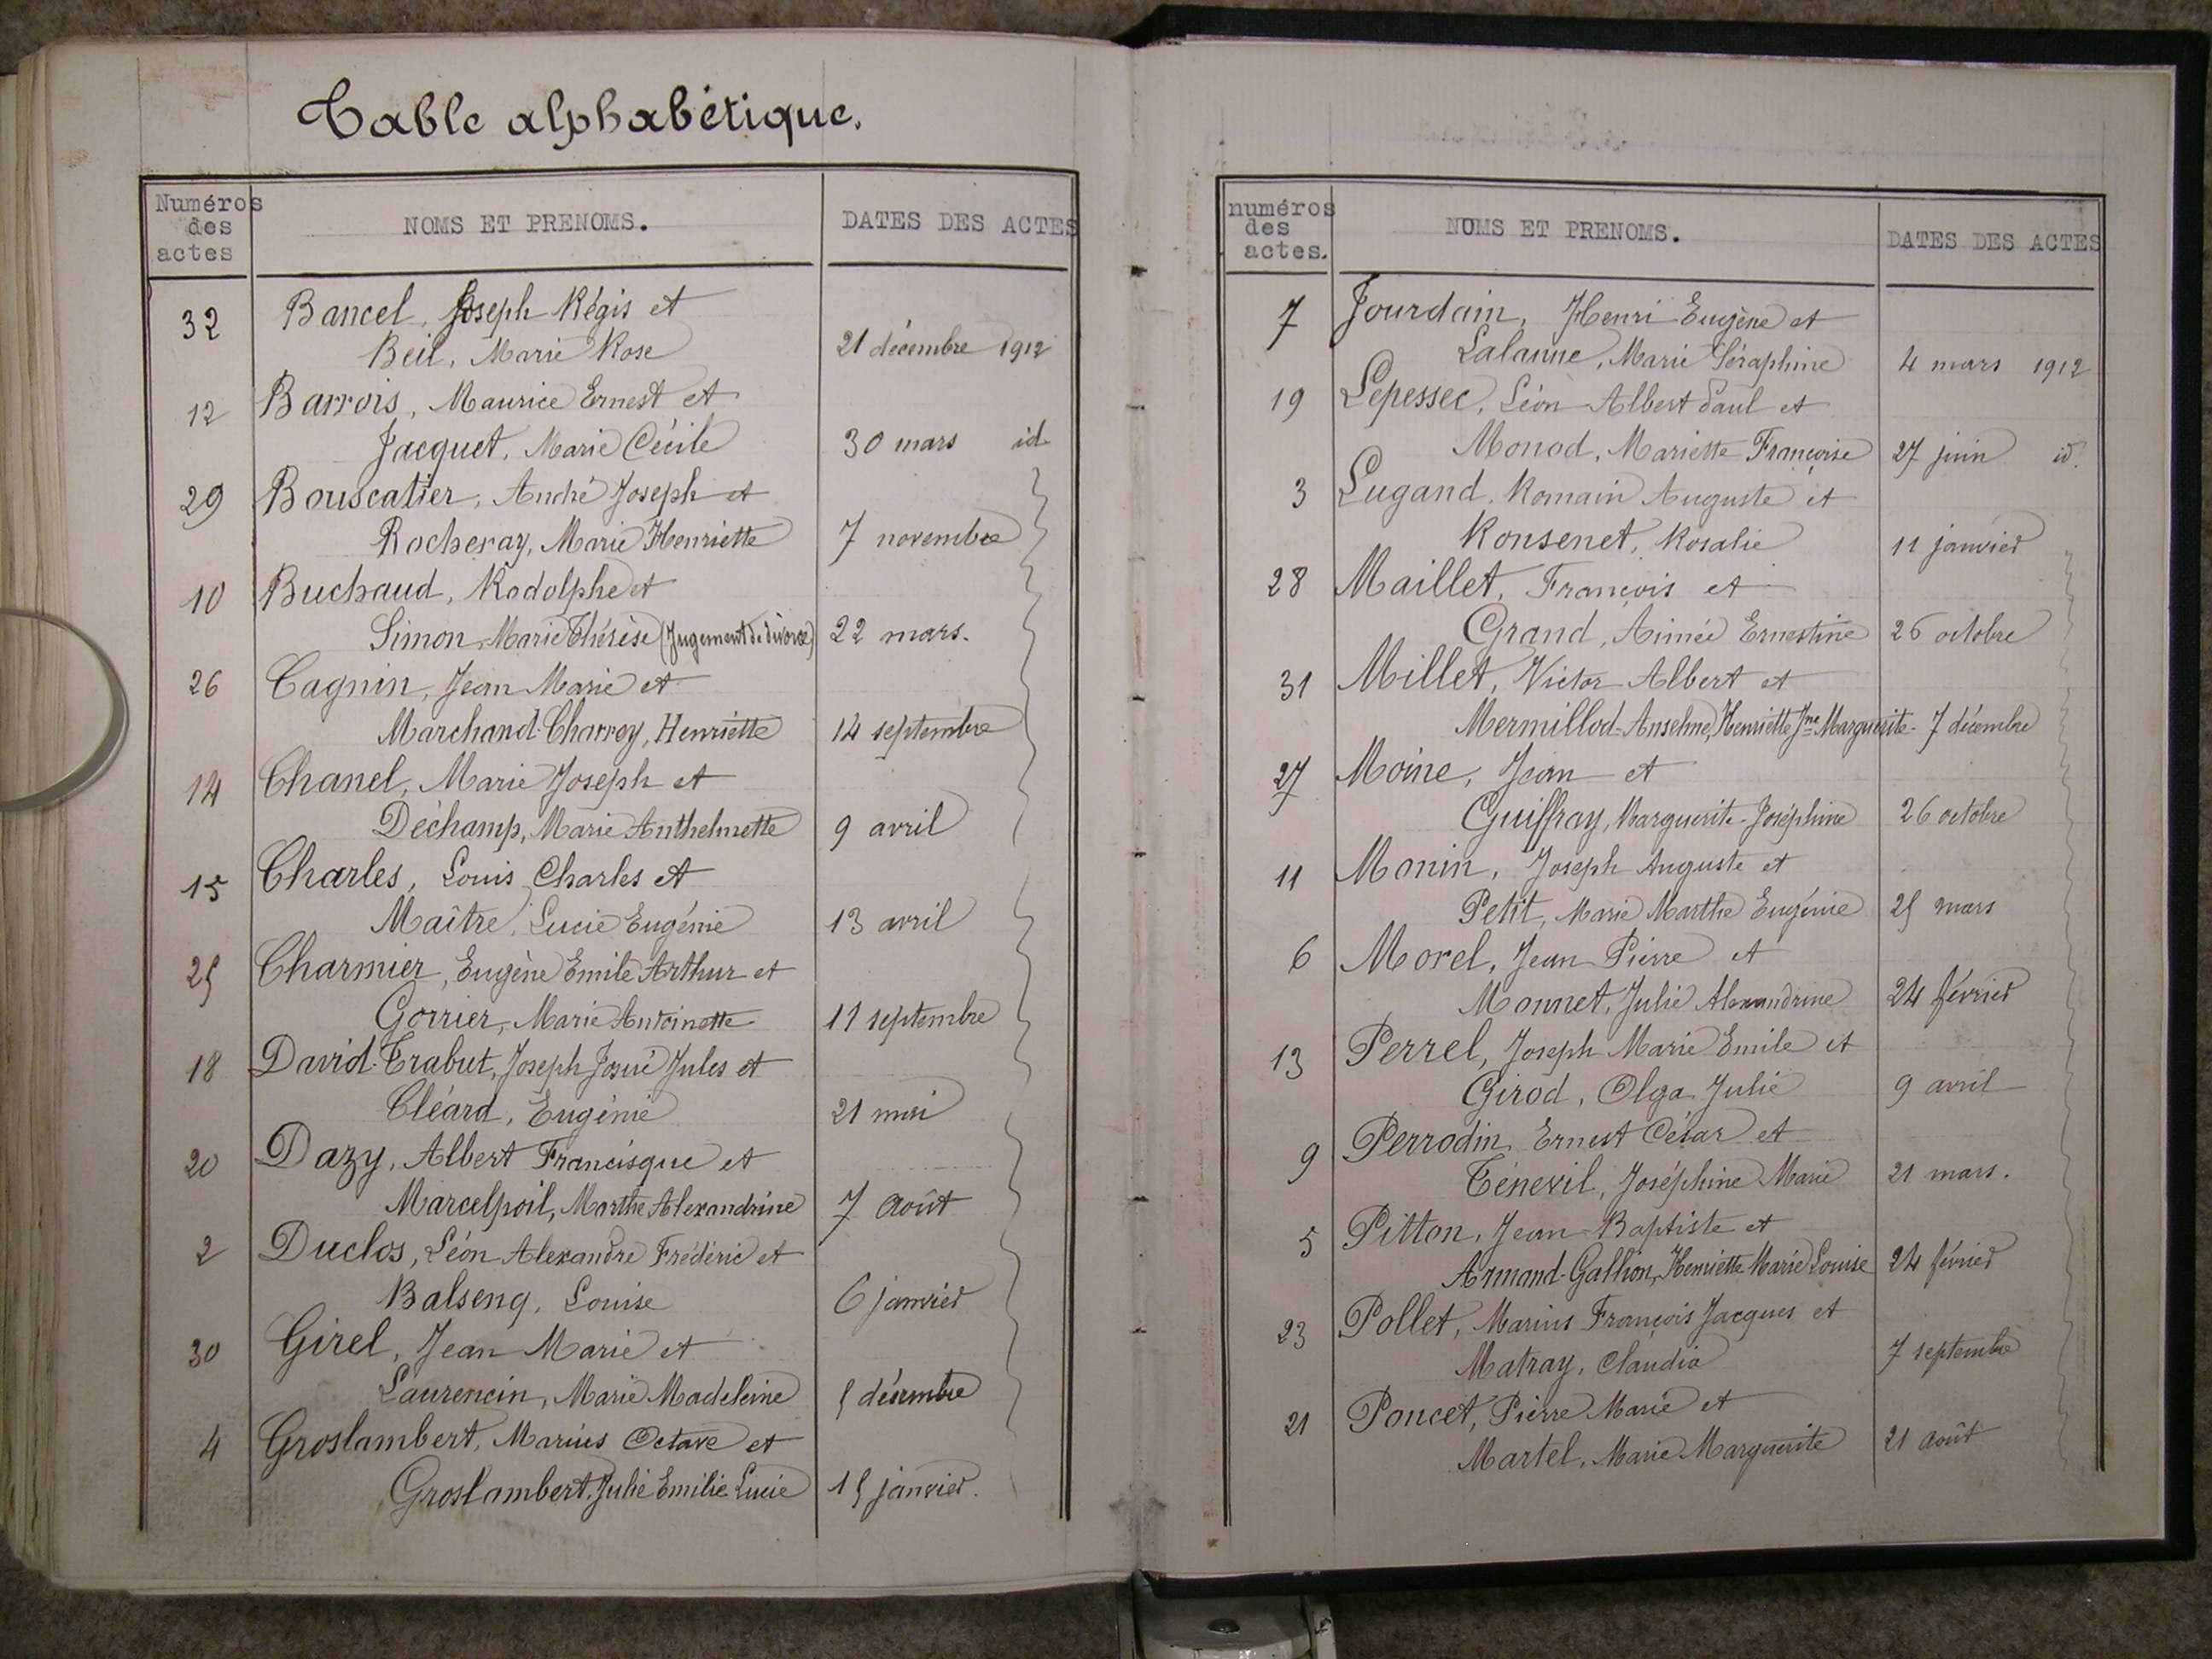 Table alphabétique.
Numéros
des
actes
NOMS ET PRENOMS.
DATES DES ACTES
32 Bancel, Joseph Régis et
Beil, Marie Rose 21 décembre 1912
12 Barrois, Maurice Ernest et
Jacquet, Marie Cécile 30 mars id
29 Bouscatier, André Joseph et
Rocheray, Marie Henriette 7 novembre
10 Buchaud, Rodolphe et
Simon, Marie Thérèse (Jugement de divorce) 22 mars.
26 Cagnin, Jean Marie et
Marchand-Charrey, Henriette 14 septembre
14 Chanel, Marie Joseph et
Déchamp, Marie Anthelmette 9 avril
15 Charles, Louis Charles et
Maître, Lucie Eugénie 13 avril
25 Charmier, Eugène Emile Arthur et
Gorrier, Marie Antoinette 11 septembre
18 David-Trabut, Joseph Josué Jules et
Cléard, Eugénie 21 mai
20 Dazy, Albert Francisque et
Marcelpoil, Marthe Alexandrine 7 Août
2 Duclos, Léon Alexandre Frédéric et
Balseng, Louise 6 janvier
30 Girel, Jean Marie et
Laurencin, Marie Madeleine 5 décembre
4 Groslambert, Marius Octave et
Groslambert, Julie Emilie Lucie 15 janvier.
numéros
des
actes.
NOMS ET PRENOMS.
DATES DES ACTES
7 Jourdain, Henri Eugène et
Lalanne, Marie Séraphine 4 mars 1912
19 Lepessec, Léon Albert Paul et
Monod, Mariette Françoise 27 juin id.
3 Lugand, Romain Auguste et
Ronsenet, Rosalie 11 janvier
28 Maillet, François et
Grand, Aimée Ernestine 26 octobre
31 Millet, Victor Albert et
Mermillod-Anselme, Henriette Jne Marguerite - 7 décembre
27 Moine, Jean et
Guiffray, Marguerite-Joséphine 26 octobre
11 Monin, Joseph Auguste et
Petit, Marie Marthe Eugénie 25 mars
6 Morel, Jean Pierre et
Monnet, Julie Alexandrine 24 février
13 Perrel, Joseph Marie Emile et
Girod, Olga Julie 9 avril
9 Perrodin, Ernest César et
Ténevil, Joséphine Marie 21 mars.
5 Pitton, Jean-Baptiste et
Armand-Gallion, Henriette Marie Louise 24 février
23 Pollet, Marius François Jacques et
Matray, Claudia 7 septembre
21 Poncet, Pierre Marie et
Martel, Marie Marguerite 21 août